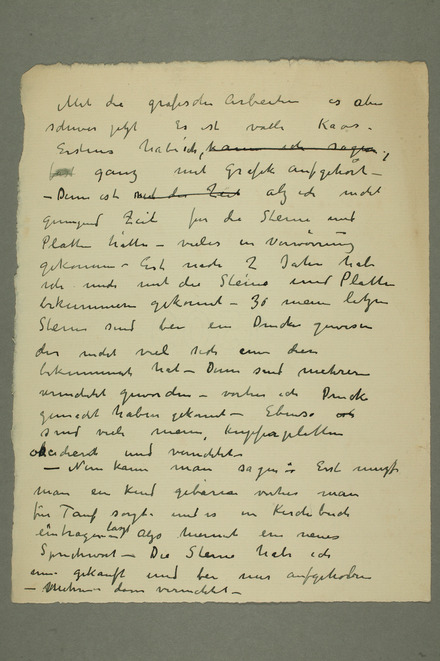 Mit die grafische Arbeiten is aber
schwer jetzt Es ist volle Kaos -
Erstens hab ich, kann ich sagen,
fast ganz mit Grafik aufgehört -
- Denn ich mit der Zeit als ich nicht
genugend Zeit für die Steine und
Platten hatte - vieles in Verwirrung
gekommen - Erst nach 2 Jahren hab
ich mich mit die Steine und Platten
bekummern gekonnt - 30 meine letzen
Steine sind bei ein Drucker gewesen
der nicht viel sich um den
bekummert hat - Denn sind mehrere
vernichtet geworden - vorher ich Druck
gemacht haben gekonnt - Ebenso
sind viele meine Kupferplatten
oksidiert und vernichtet
- Nun kann man sagen Erst muss
man ein Kind gebären vorher man
für Tauf sorgt und es in Kirchebuch
eintragen lasst Also kommt ein neues
Sprichwort - Die Steine hab ich
nun gekauft und bei mir aufgehoben
- Mehrere dann vernichtet -